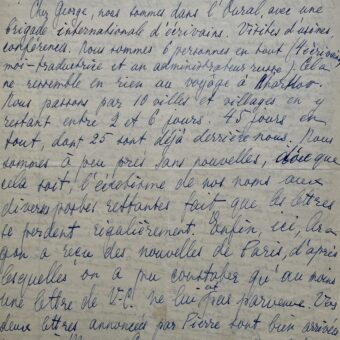 Cher George, nous sommes dans l'Oural, avec une
brigade internationale d'écrivains. Visites d'usines,
conférences. Nous sommes 6 personnes en tout (4 écrivains,
moi-traductrice et un administrateur russe) Cela
ne ressemble en rien au voyage à Kharkov.
Nous passons par 10 villes et villages en y
restant entre 2 et 6 jours. 45 jours en
tout, dont 25 sont déjà derrière nous. Nous
sommes à peu près sans nouvelles, que
cela soit, l' de nos noms aux
diverses postes restantes fait que les lettres
se perdent régulièrement. Enfin, ici,
on a reçu des nouvelles de Paris, d'après
lesquelles on a pu constater qu'au moins
une lettre de V-C. ne lui est pas parvenue. Vos
deux lettres annoncées par Pierre sont bien arrivées